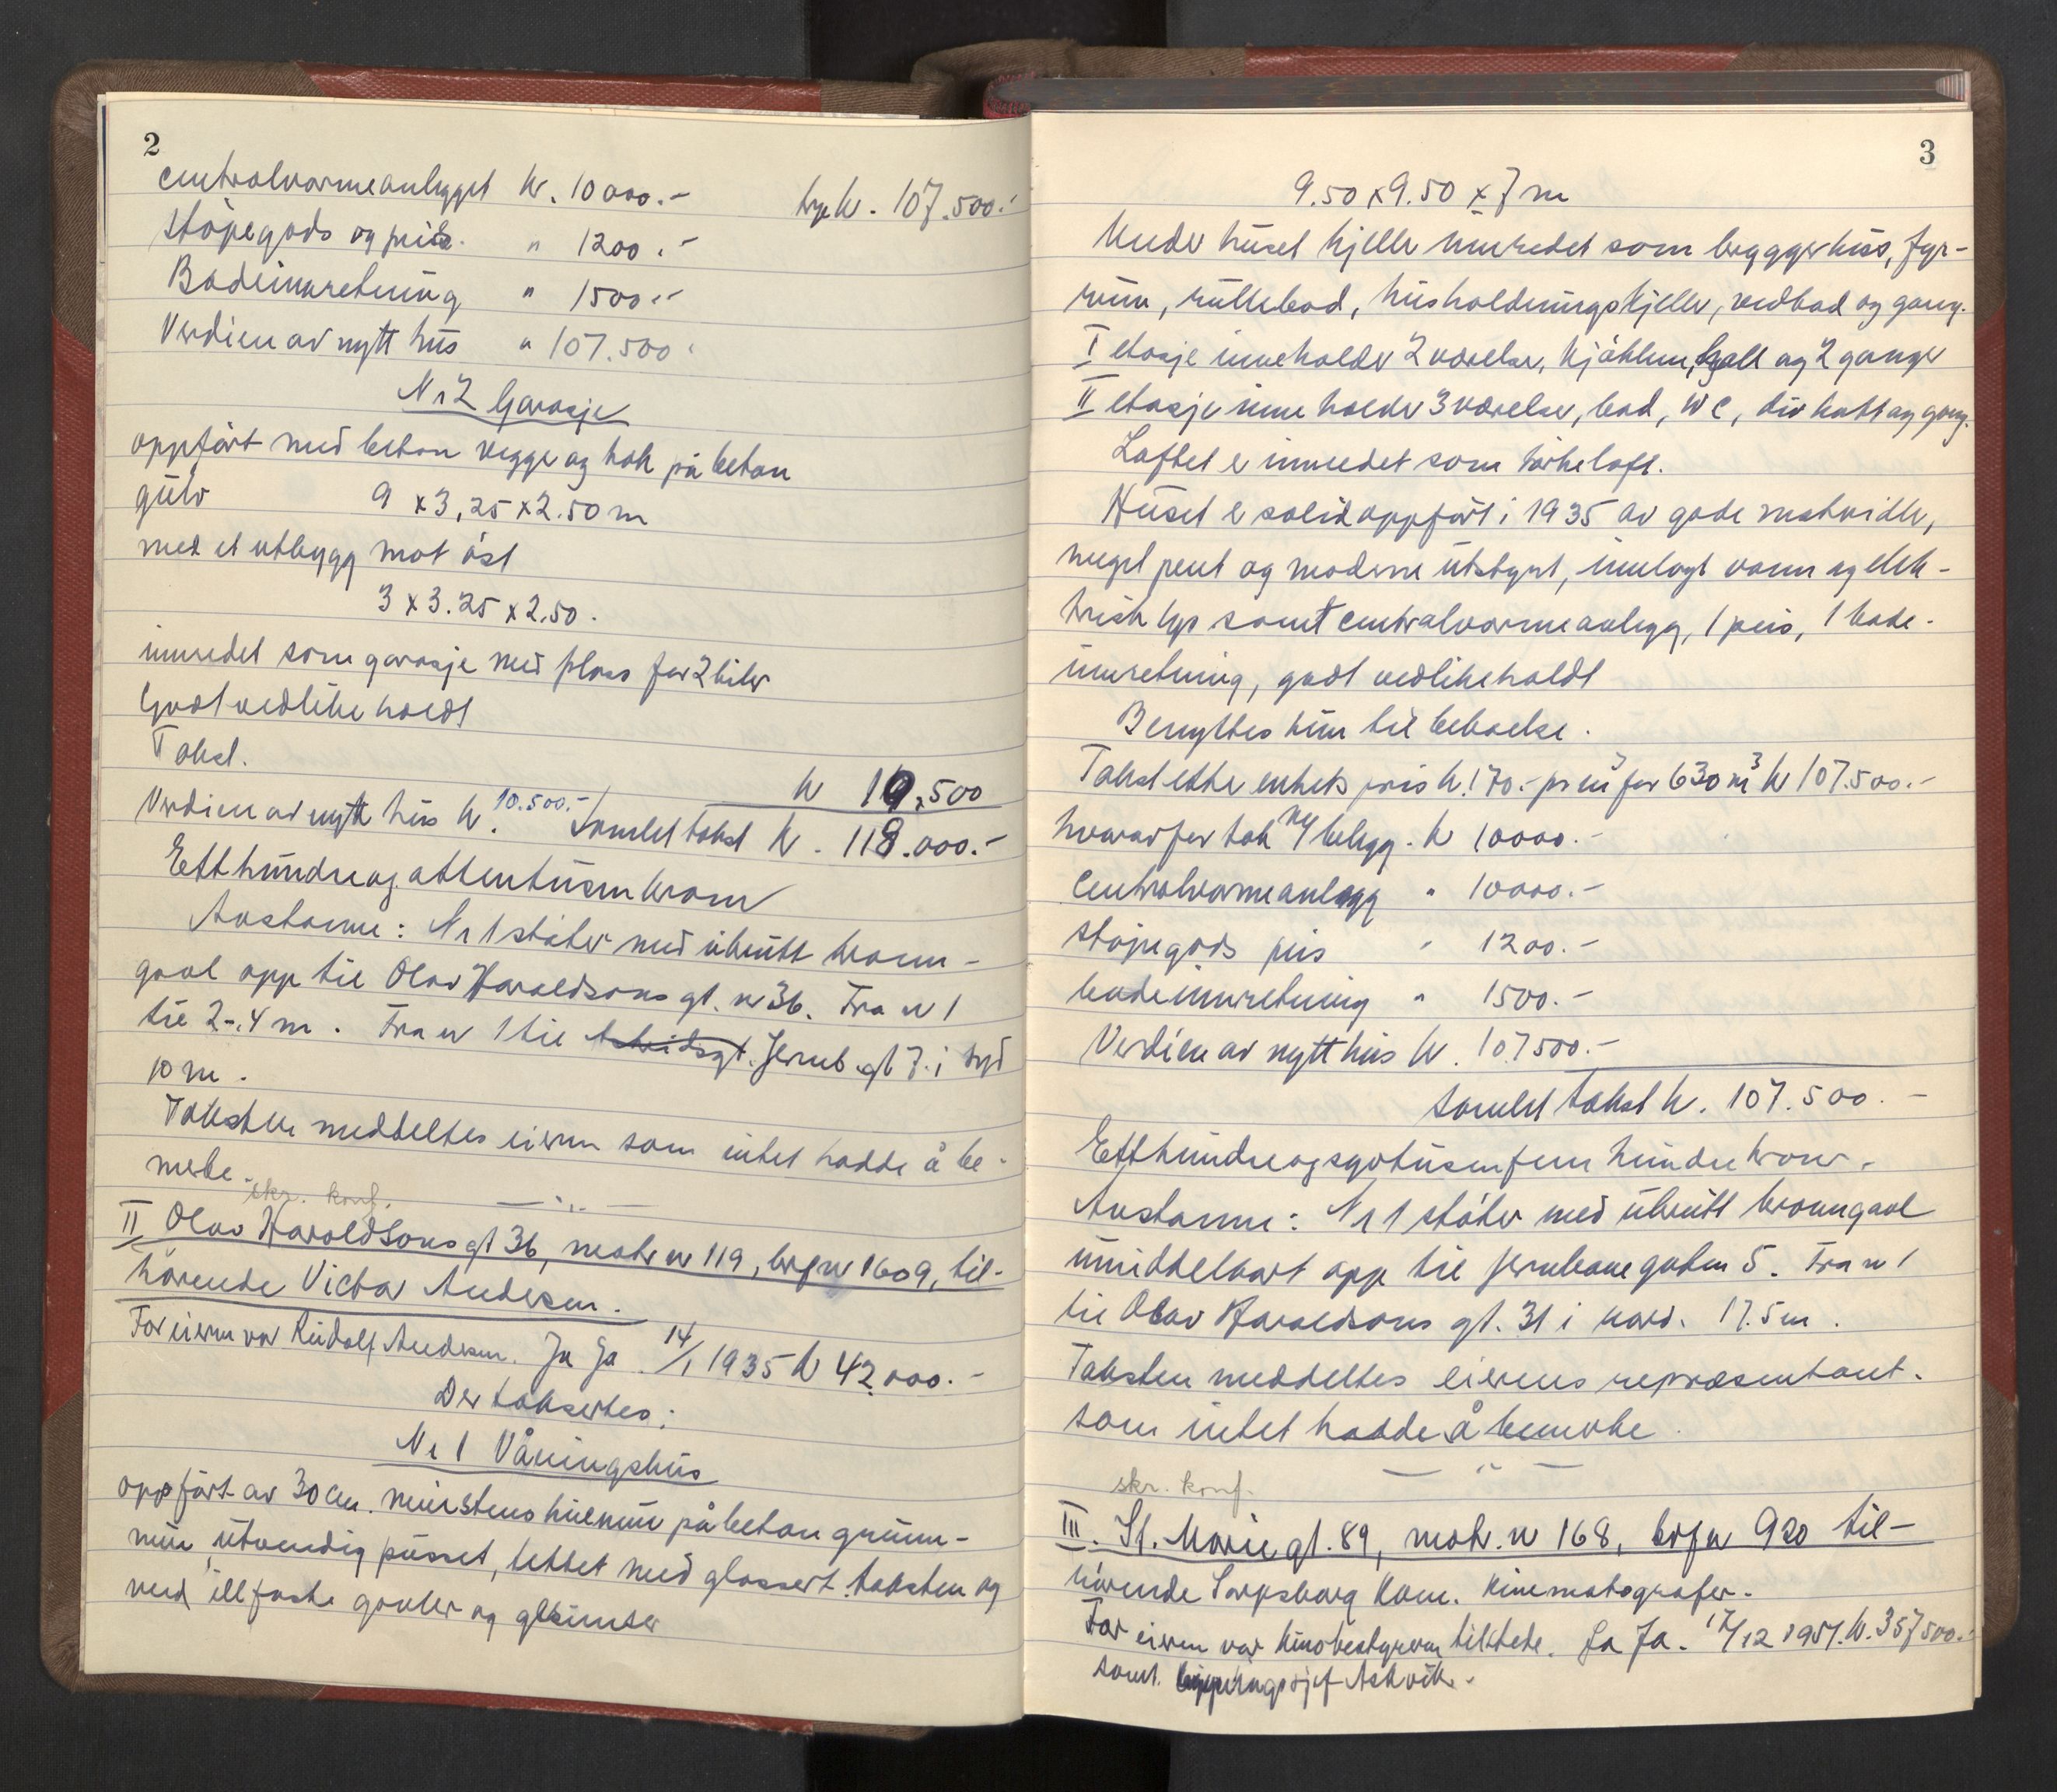 2
centralvarmeanlegget kr. 10000.- kr. 107.500.-
støpegods og peis. " 1200.-
Badeinnretning " 1500.-
Verdien av nytt hus " 107.500.
Nr 2 Garasje
oppført med beton vegger og tak på beton
gulv 9 x 3,25 x 2.50 m
med et utbygg mot øst
3 x 3.25 x 2.50.
innredet som garasje med plass for 2 biler
Godt vedlikeholdt
Takst.
kr 10.500
Verdien av nytt hus kr. 10.500.- Samlet takst kr. 118.000.-
Etthundreogattentusen kroner
Avstanne: Nr 1 støter med ubrutt brann-
gavl opp til Olav Haraldsons gt. nr 36. Fra nr 1
til 2-.4 m. Fra nr 1 til Arbeidsgt. Jernb.gt 7. i syd
10 m.
Taksten meddeltes eieren som intet hadde å be-
merke.
skr. konf.
II Olav Haraldsons gt 36, matr nr 119, brf nr 1609, til-
hørende Victor Andersen.
For eieren var Rudolf Andersen. Ja Ja. 14/1 1935 kr 42.000.-
Der takseres:
Nr 1 Våningshus
oppført av 30 cm. murstens hulmur på beton grunn-
mur, utvendig pusset, tekket med glassert taksten og
med illfaste gavler og gesimser
3
9.50 x 9.50 x 7 m
Under huset kjeller innredet som bryggerhus, fyr-
rum, rullebod, husholdningskjeller, vedbod og gang.
I etasje inneholder 2 værelser, kjøkken, hall og 2 ganger
II etasje inneholder 3 værelser, bad, WC, div kott og gang.
Loftet er innredet som tørkeloft.
Huset er solid oppført i 1935 av gode materialer,
meget pent og moderne utstyrt, innlagt vann og elek-
trisk lys samt centralvarmeanlegg, 1 peis, 1 bade-
innretning, godt vedlikeholdt
Benyttes kun til beboelse.
Takst etter enhetspris kr. 170.- pr m³ for 630 m³ kr 107.500.-
hvorav for tak m/ belegg. kr 10000.-
Centralvarmeanlegg " 10000.-
støpegods peis " 1200.-
badeinnretning " 1500.-
Verdien av nytt hus kr. 107500.-
Samlet takst kr. 107.500.-
Etthundreogsyvtusenfemhundre kroner.
Avstanne: Nr 1 støter med ubrutt branngavl
umiddelbart opp til Jernbanegaten 5. Fra nr 1
til Olav Haraldsons gt. 31 i nord. 17.5 m.
Taksten meddeltes eierens representant.
som intet hadde å bemerke
skr. konf.
III. St. Marie gt. 89, matr. nr 168, brf nr 920 til-
hørende Sarpsborg Kom. Kinematografer.
For eieren var kinobestyreren tilstede. Ja Ja. 17/12 1951. kr. 357500.-
samt. bygningssjef Askvik.